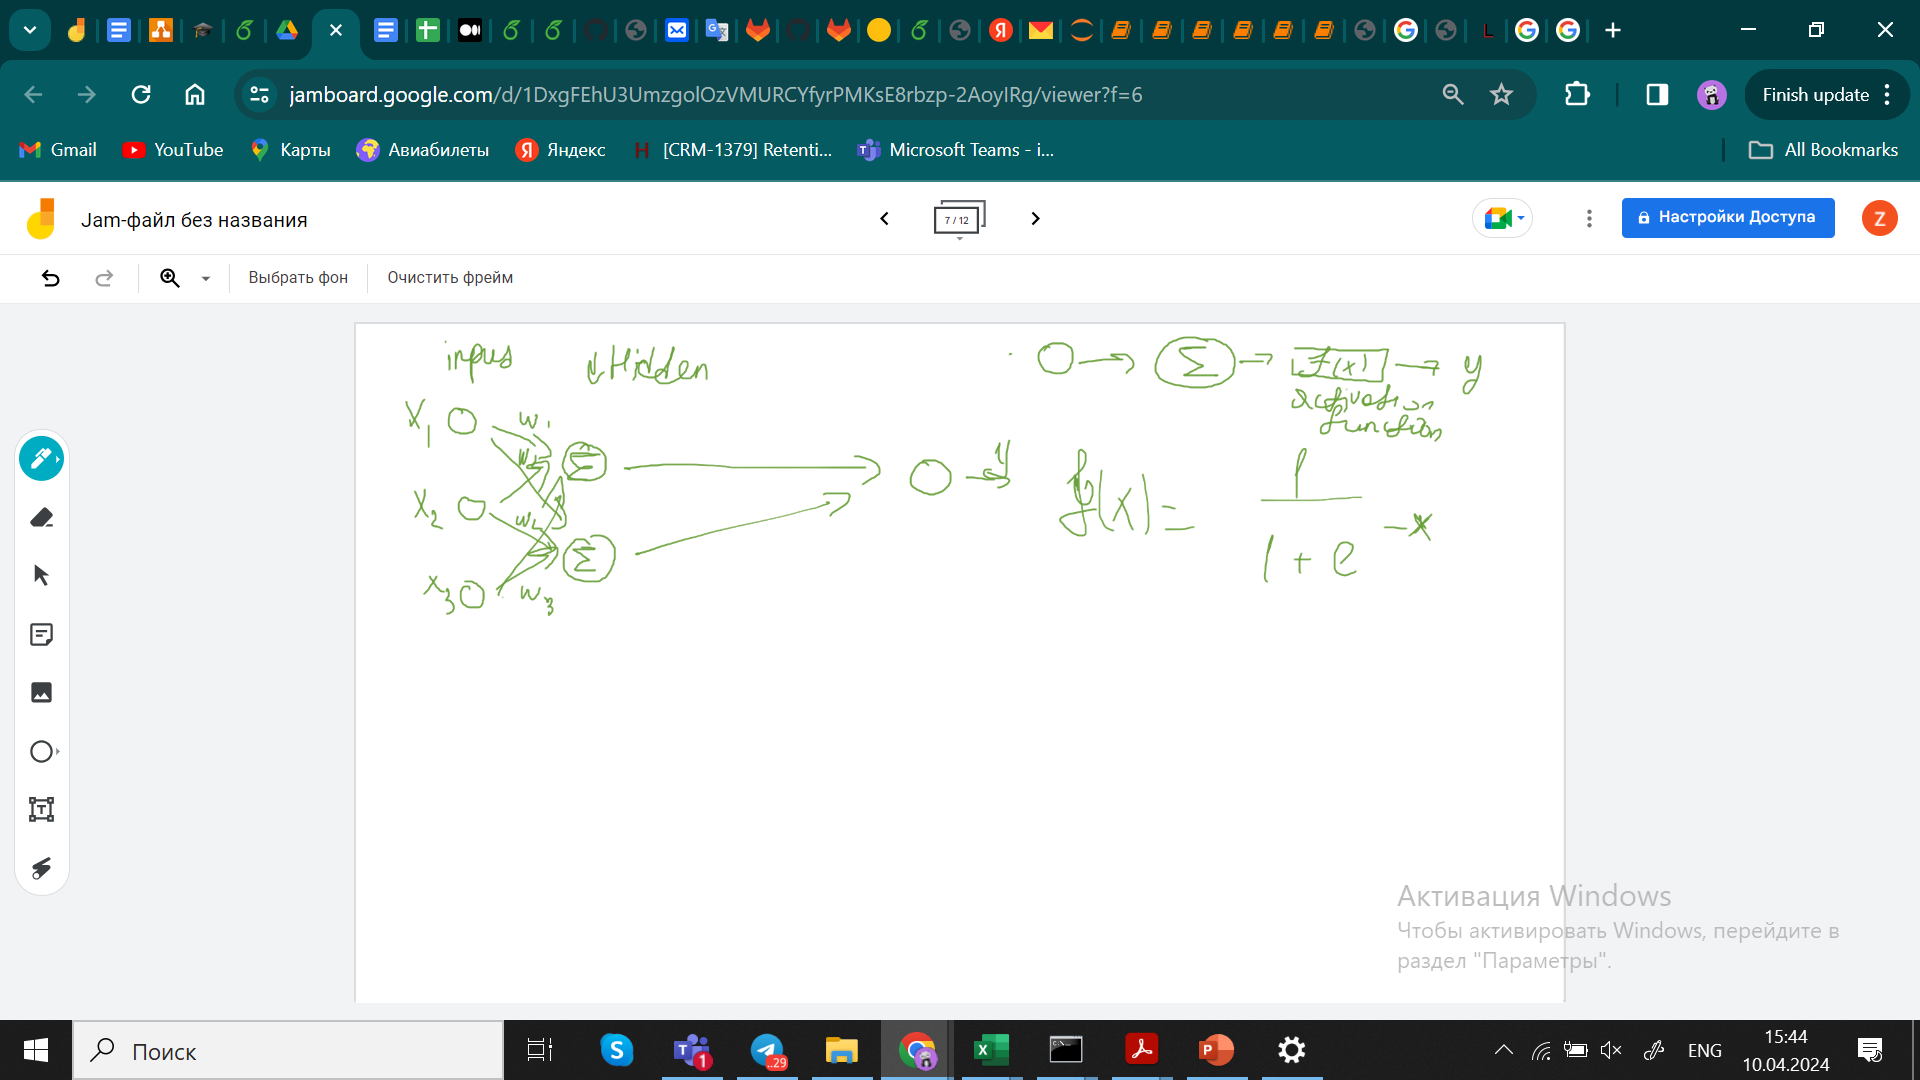 jamboard.google.com/d/1DxgFEhU3UmzgolOzVMURCYfyrPMKsE8rbzp-2AoyIRg/viewer?f=6
Finish update
Gmail
YouTube
Карты
Авиабилеты
Яндекс
[CRM-1379] Retenti...
Microsoft Teams - i...
All Bookmarks
Jam-файл без названия
7 / 12
Настройки Доступа
Z
Выбрать фон
Очистить фрейм
Hidden
Σ
f(x)
y
activation
function
X1
w1
Σ
y
f(x) = 1 / 1 + e -x
X2
w2
Σ
x3
w3
Активация Windows
Чтобы активировать Windows, перейдите в
раздел "Параметры".
Поиск
1
..29
ENG
15:44
10.04.2024